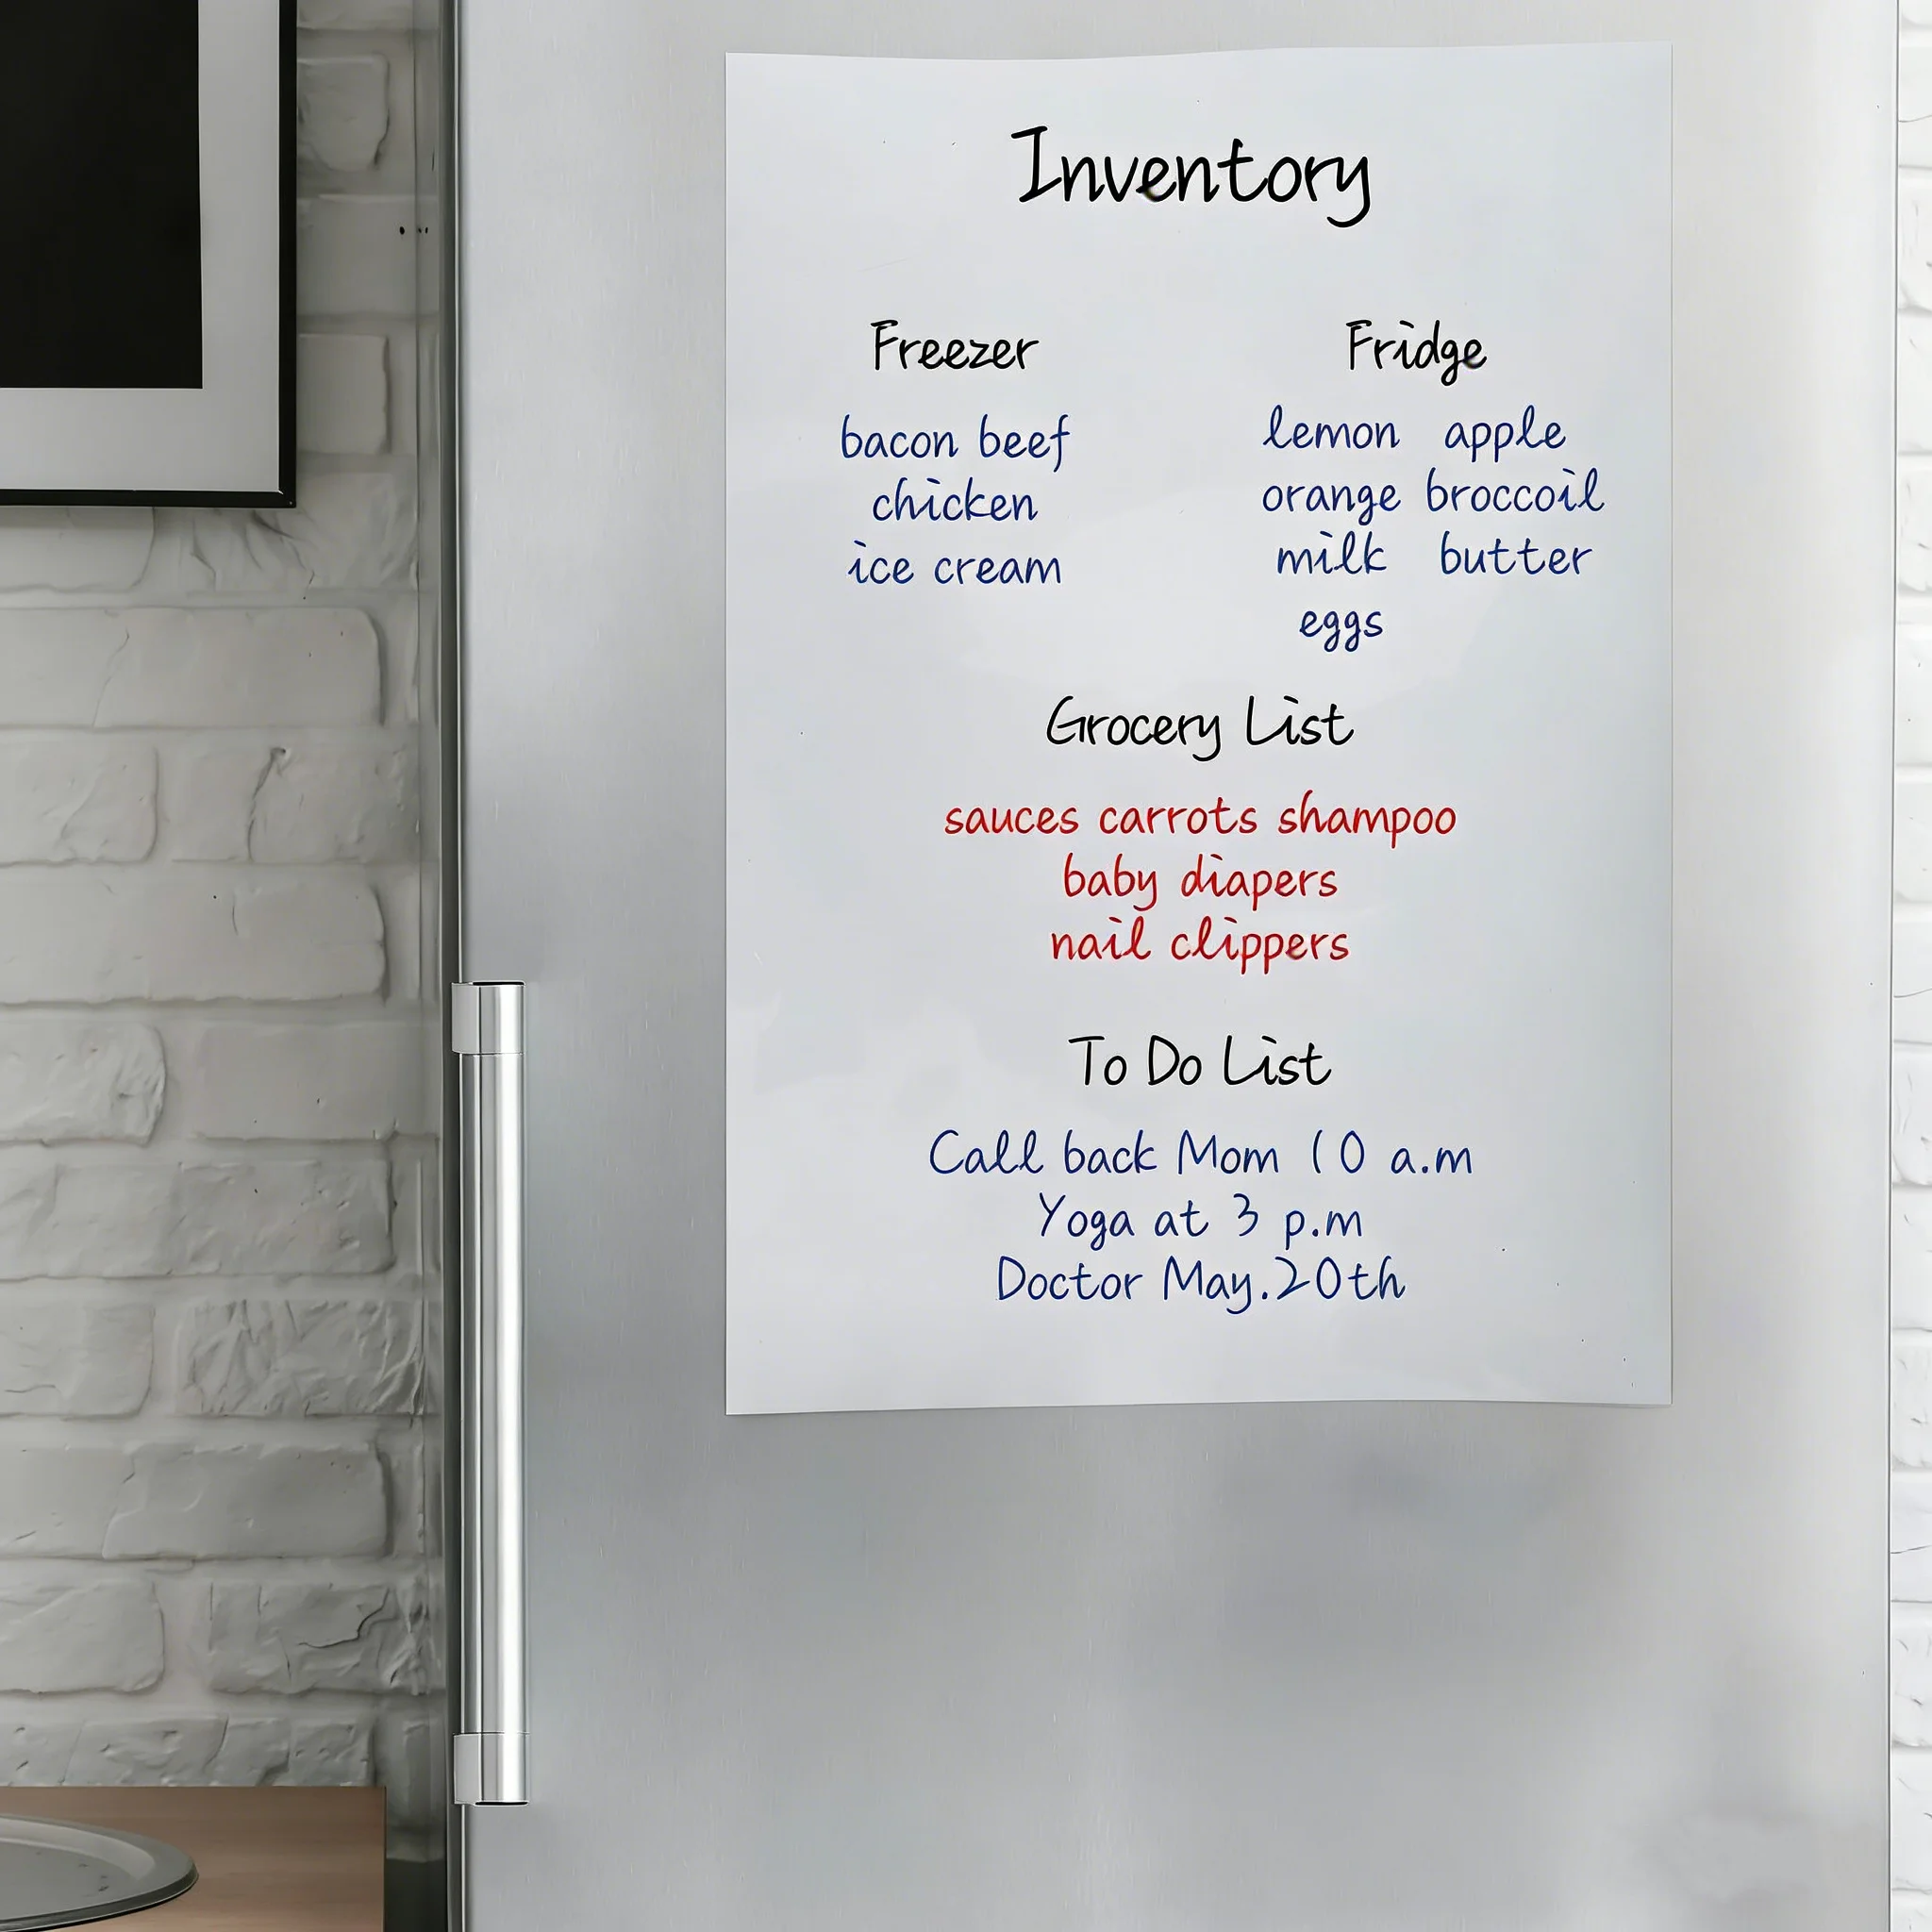 Inventory
Freezer
bacon beef
chicken
ice cream
Fridge
lemon apple
orange broccoil
milk butter
eggs
Grocery List
sauces carrots shampoo
baby diapers
nail clippers
To Do List
Call back Mom 10 a.m
Yoga at 3 p.m
Doctor May.20th